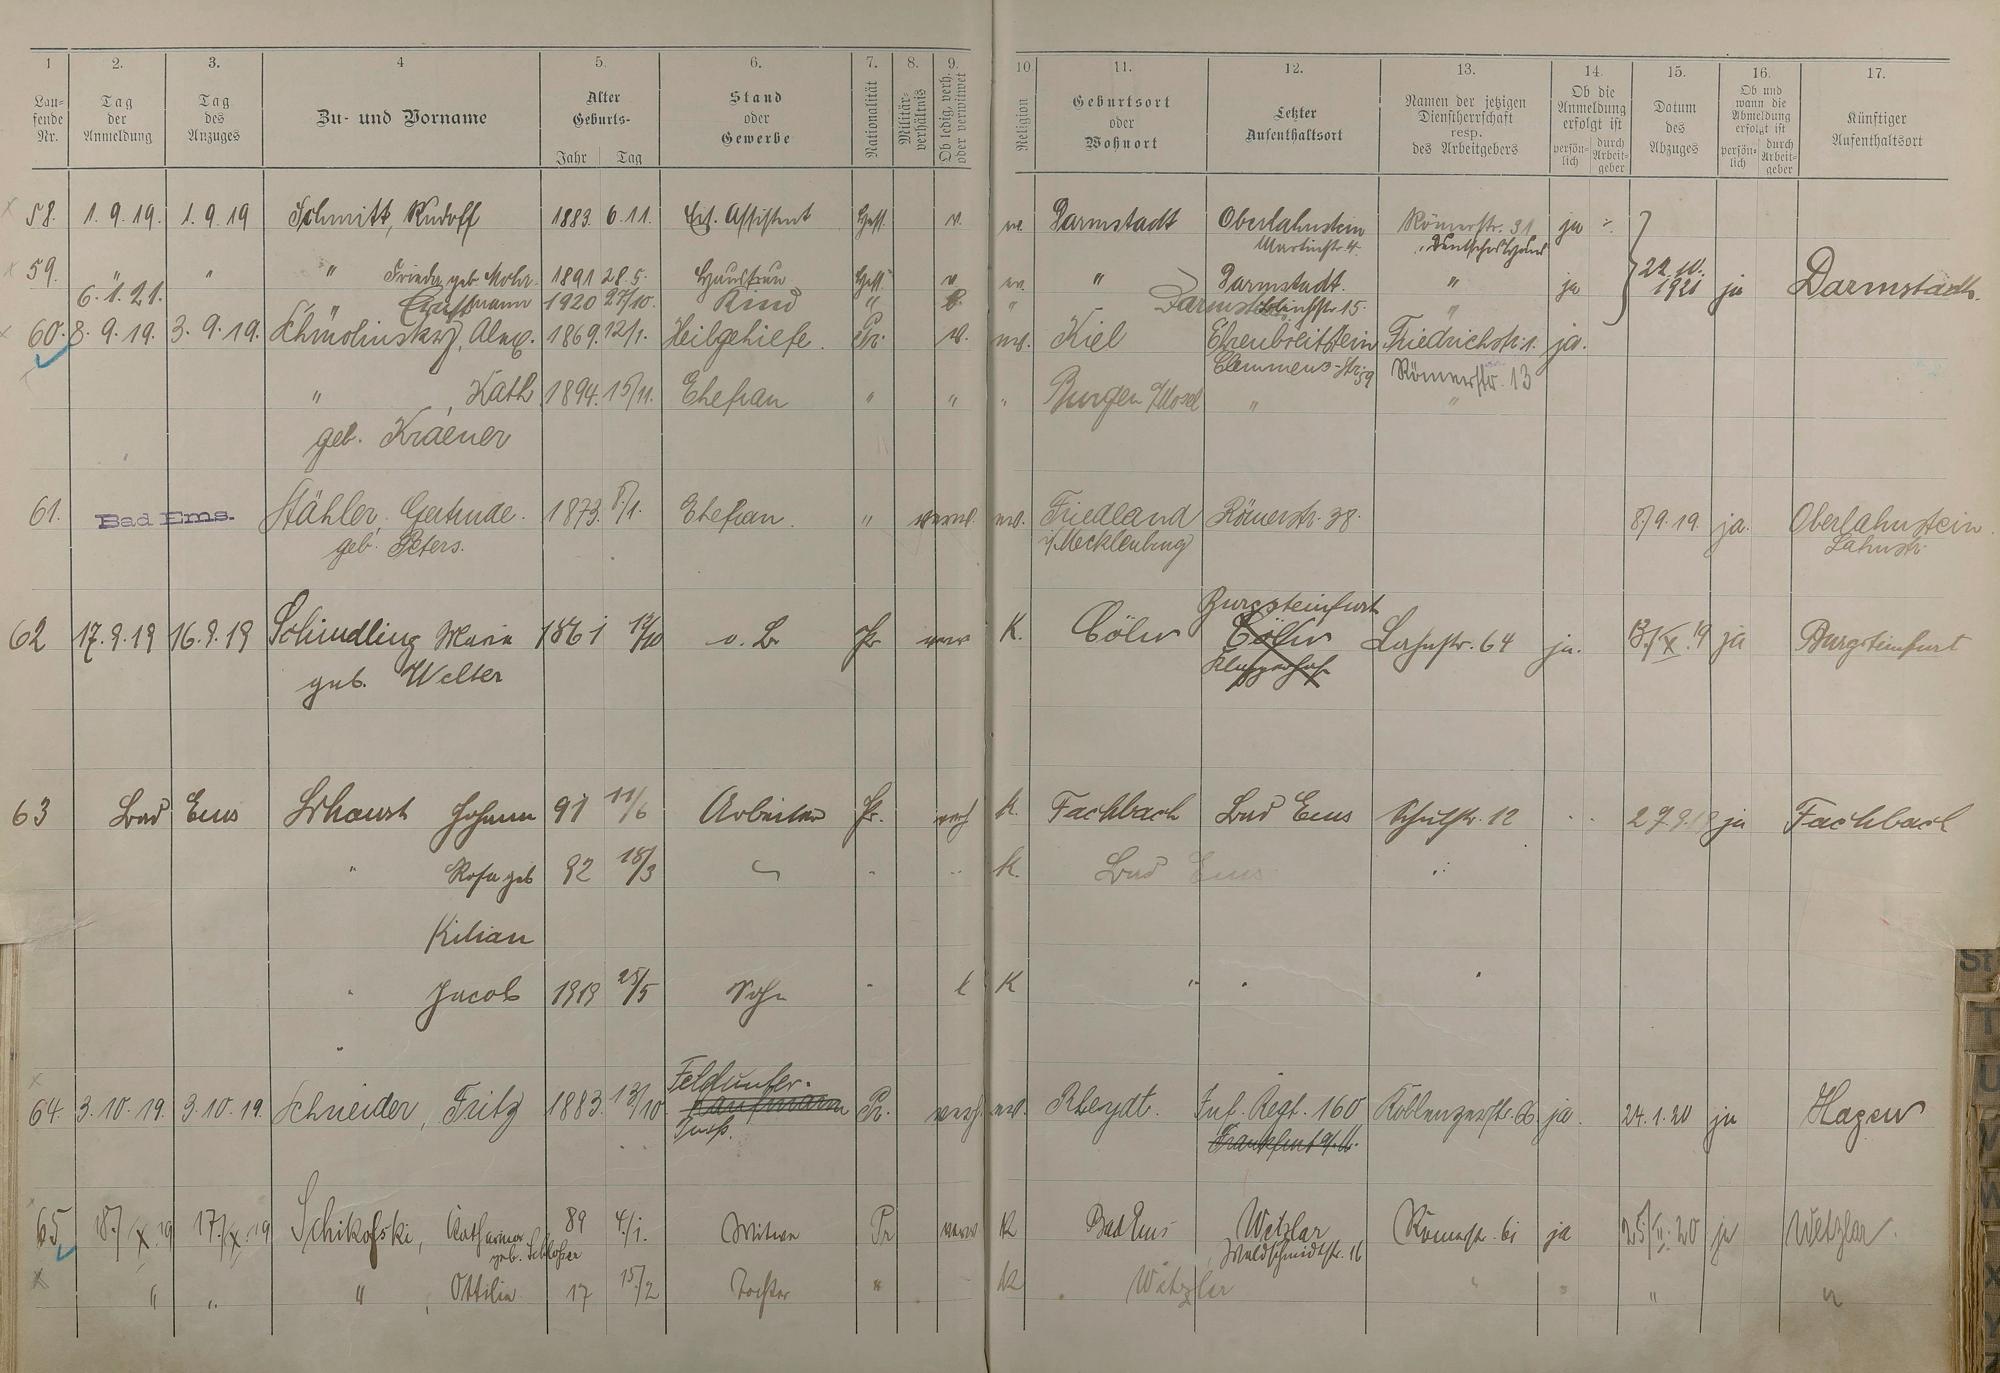 1 2. 3. 4 5. 6. 7. 8. 9. 10. 11. 12. 13. 14. 15. 16. 17.
Lau-fende Nr. Tag der Anmeldung Tag des Anzuges Zu- und Vorname Alter Geburts- Jahr Tag Stand oder Gewerbe Nationalität Militär-verhältnis Ob ledig, verh. oder verwitwet Religion Geburtsort oder Wohnort Letzter Aufenthaltsort Namen der jetzigen Dienstherrschaft resp. des Arbeitgebers Ob die Anmeldung erfolgt ist persön-lich durch Arbeit-geber Datum des Abzuges Ob und wann die Abmeldung erfolgt ist persön-lich durch Arbeit-geber Künftiger Aufenthaltsort
58. 1.9.19. 1.9.19 Schmitt, Rudolf 1883. 6.11. Eis. Assistent Hess. v. ev. Darmstadt Oberlahnstein Römerstr. 31 ja
Martinstr. 4. "Deutsches Haus"
59. " " " Frieda geb. Mohr 1891 28.5. Hausfrau Hess. v. ev. " Darmstadt. " ja 22.10.1921 ja Darmstadt.
6.1.21. " 1920 27/10. Kind " " Darmstadt 15. "
60. 3.9.19. 3.9.19. Schmolinsky, Alex. 1869. 12/1. Heilgehilfe. Pr. v. ev. Kiel Ehrenbreitstein Friedrichstr. 1. ja.
Clemens-Str. 59 Römerstr. 13
" , Kath. 1894. 15/11. Ehefrau " " " Burgen a/Mosel " "
geb. Kraener
61. Bad Ems. Stähler, Gertrude. 1873. 8/1. Ehefrau. " verw. ev. Friedland Römerstr. 38. 8/9.19. ja. Oberlahnstein.
geb. Peters. i/Mecklenburg Lahnstr.
Burgsteinfurt
62 17.9.19 16.9.19 Schindling Maria 1861 19/10 o. B. Pr. verw K. Cöln Cöln Lahnstr. 64 ja. 13/IX.19 ja Burgsteinfurt
geb. Welter
63 Bad Ems Johann 91 11/6 Arbeiter Pr. verh K. Fachbach Bad Ems Schulstr. 12 29.9.19 ja Fachbach
" Rosa geb 92 18/3 " " " K. Bad Ems "
Kilian
" Jacob 1919 25/5 Sohn " l K " " "
Feldunter-
64. 3.10.19. 3.10.19. Schneider, Fritz 1883. 13/10. Kaufmann Pr. verh ev. Rheydt. Inf. Regt. 160 Koblenzerstr. 66 ja. 24.1.20 ja Hagen
Frankfurt a/M.
65 18./X.19 17./X.19 Schikofski, Katharina 89 4./1. Witwe Pr verw K Bad Ems Wetzlar Römerstr. 61 ja 25/II.20 ja Wetzlar.
geb. Schlosser Waldschmidtstr. 16
" " " , Ottilie 17 15/2 Tochter " K Wetzlar " " " "